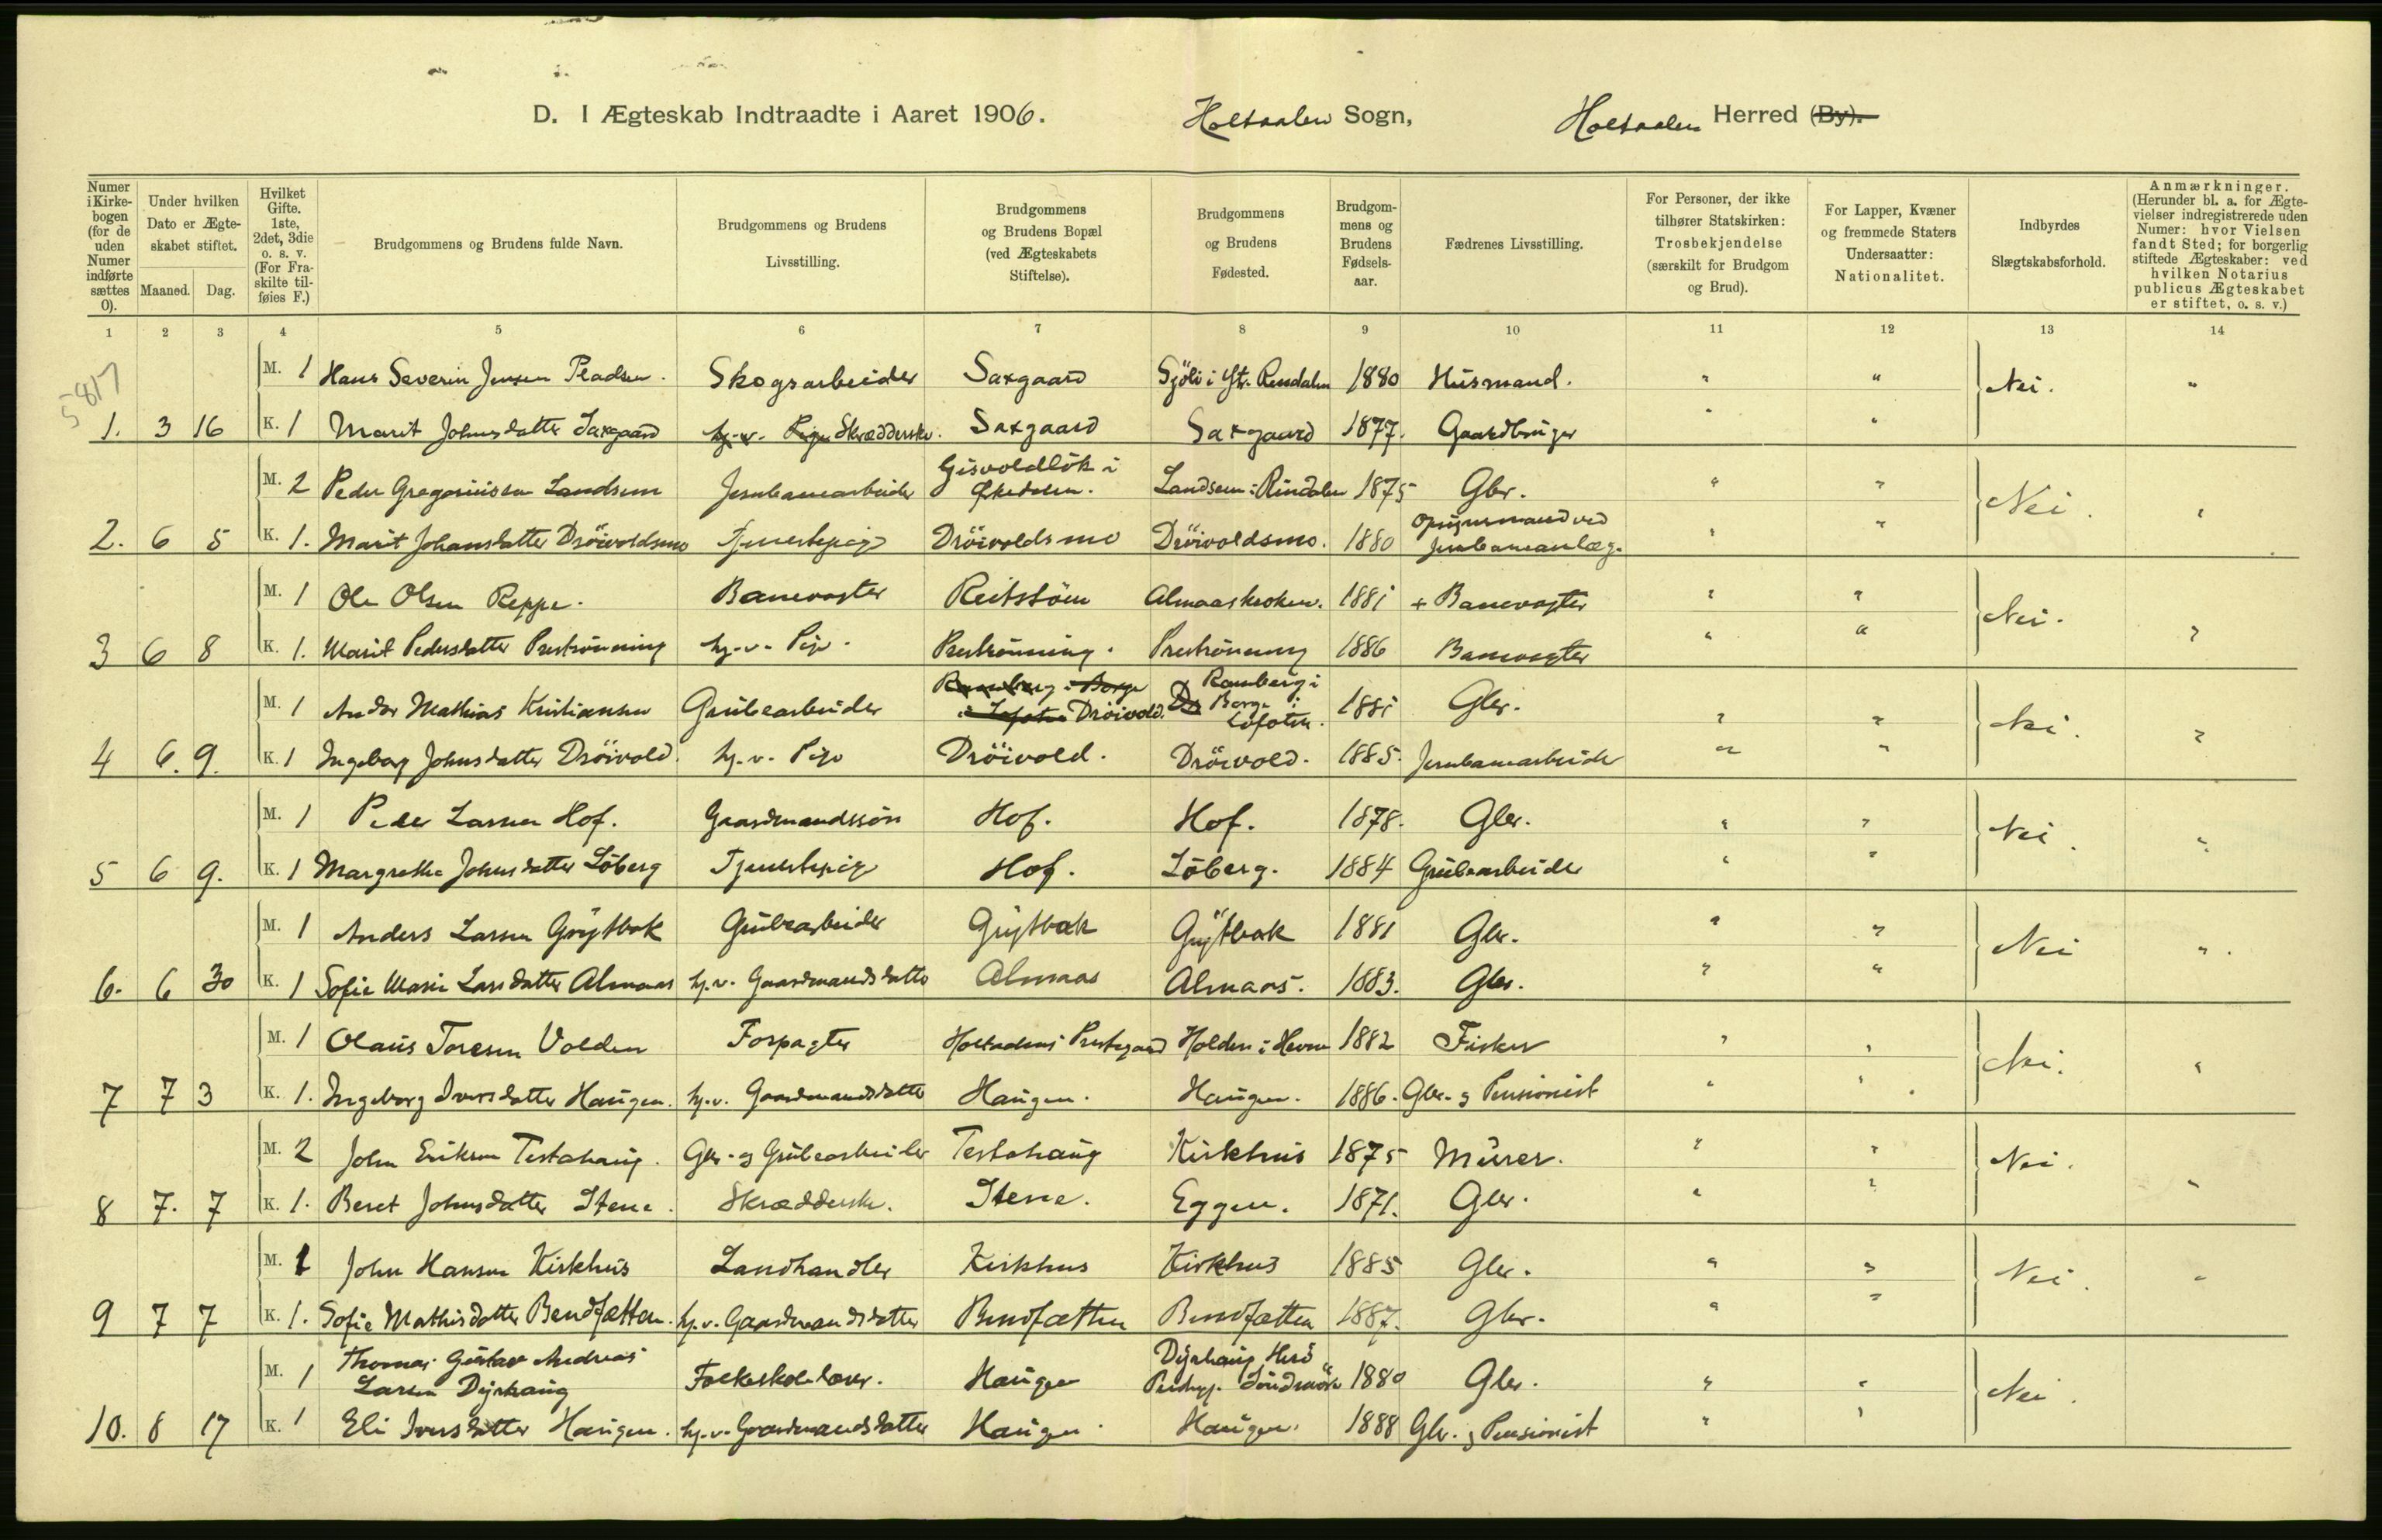 D. I Ægteskab Indtraadte i Aaret 1906. Holtaalen Sogn, Holtaalen Herred (By).
Numer i Kirkebogen (for de uden Numer indførte sættes 0). Under hvilken Dato er Ægteskabet stiftet. Maaned. Dag. Hvilket Gifte. 1ste, 2det, 3die o. s. v. (For Fraskilte tilføies F.) Brudgommens og Brudens fulde Navn. Brudgommens og Brudens Livsstilling. Brudgommens og Brudens Bopæl (ved Ægteskabets Stiftelse). Brudgommens og Brudens Fødested. Brudgommens og Brudens Fødselsaar. Fædrenes Livsstilling. For Personer, der ikke tilhører Statskirken: Trosbekjendelse (særskilt for Brudgom og Brud). For Lapper, Kvæner og fremmede Staters Undersaatter: Nationalitet. Indbyrdes Slægtskabsforhold. Anmærkninger. (Herunder bl. a. for Ægtevielser indregistrerede uden Numer: hvor Vielsen fandt Sted; for borgerlig stiftede Ægteskaber: ved hvilken Notarius publicus Ægteskabet er stiftet, o. s. v.)
1 2 3 4 5 6 7 8 9 10 11 12 13 14
5817
M. 1 Hans Severin Jensen Pladsen. Skogsarbeider Saxgaard Sjöli i Ytr. Rendalen 1880 Husmand. " " Nei. "
1. 3 16 K. 1 Marit Johnsdatter Saxgaard hj.-v. Pige Skrædderske. Saxgaard Saxgaard 1877. Gaardbruger " "
M. 2 Peder Gregoriussen Landsem Jernbanearbeider Gisvoldlök i Landsem i Rindalen 1875 Gbr. " " Nei. "
2. 6 5 K. 1. Marit Johansdatter Dröivoldsmo Tjenestepige Dröivoldsmo Dröivoldsmo. 1880 Opsynsmand ved Jernbaneanlæg. " "
M. 1 Ole Olsen Reppe. Banevogter Reitstöen Almaaskroken. 1881 + Banevogter " " Nei.
3 6 8 K. 1. Marit Pedersdatter Preströnning hj.-v. Pige. Preströnning. Preströnning 1886 Banevogter " " "
M. 1 Andor Mathias Kristiansen Grubearbeider Ramberg i Borge i Lofoten Dröivold. Ramberg i Borge i Lofoten. 1881 Gbr. " " Nei.
4 6. 9. K. 1 Ingeborg Johnsdatter Dröivold. hj.-v. Pige Dröivold. Dröivold. 1885. Jernbanearbeider " " "
M. 1 Peder Larsen Hof. Gaardmandssön Hof. Hof. 1878. Gbr. " " Nei.
5 6 9. K. 1 Margrethe Johnsdatter Löberg Tjenestepige Hof. Löberg. 1884 Grubearbeider " " "
M. 1 Anders Larsen Grytbak Grubearbeider Grytbak Grytbak 1881 Gbr. " " Nei
6. 6 30 K. 1 Sofie Marie Larsdatter Almaas hj.-v. Gaardmandsdatter Almaas Almaas. 1883. Gbr. " " ".
M. 1 Olaus Toresen Volden Forpagter Holtaalens Prestegaard Holden i Hevne 1882 Fisker " " Nei.
7 7 3 K. 1. Ingeborg Iversdatter Haugen. hj.v. Gaardmandsdatter Haugen. Haugen. 1886. Gbr. og Pensionist " " "
M. 2 John Eriksen Testahaug. Gbr. og Grubearbeider Testahaug Kirkhus 1875 Murer. " " Nei.
8 7. 7 K. 1. Beret Johnsdatter Stene. Skrædderske. Stene. Eggen. 1871. Gbr. " " "
M. 1 John Hansen Kirkhus Landhandler Kirkhus Kirkhus 1885 Gbr. " " Nei.
9 7 7 K. 1. Sofie Mathisdatter Bendfatten. hj.v. Gaardmandsdatter Bendfatten Bendfatten 1887. Gbr. " " "
M. 1 Thomas Gustav Andreas Larsen Dyrhaug Folkeskolelærer. Haugen Dyrhaug Herö Prestegj. Söndmöre 1880 Gbr. " " Nei.
10. 8 17 K. 1 Eli Iversdatter Haugen. hj.-v. Gaardmandsdatter Haugen Haugen. 1888 Gbr. og Pensionist " "